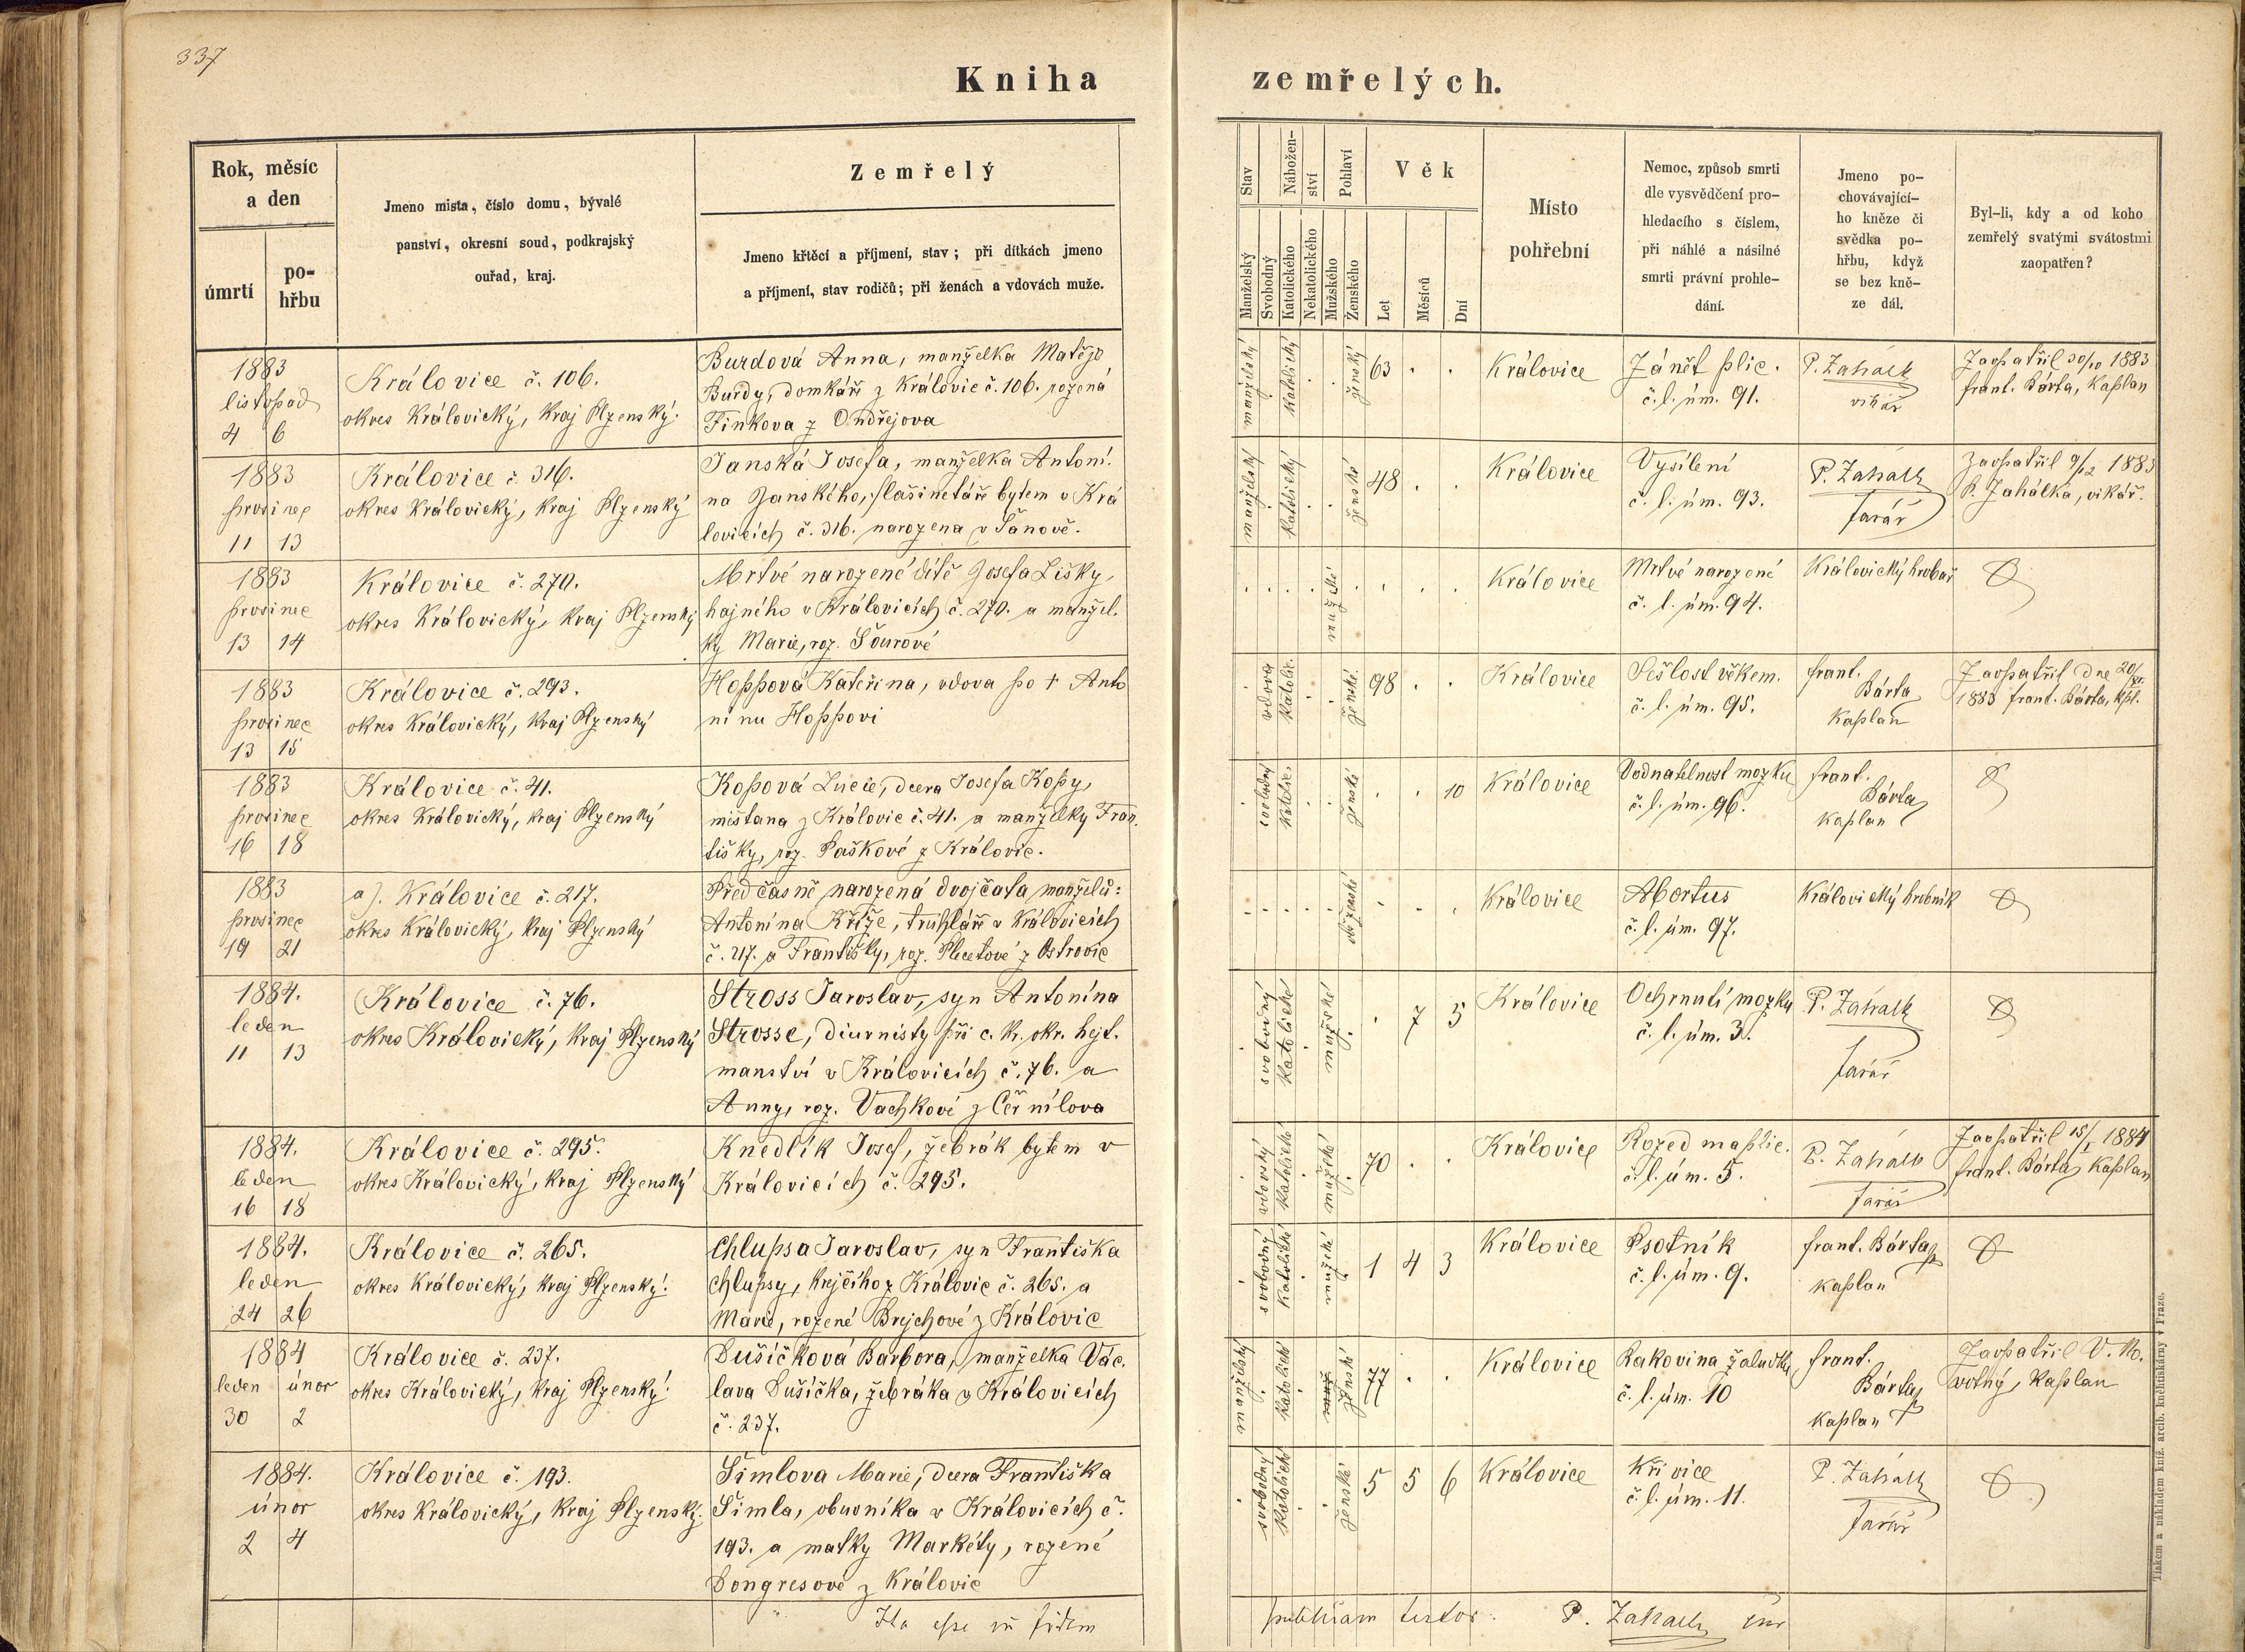 337
Kniha zemřelých.
Rok, měsíc
a den
úmrtí
po-
hřbu
Jmeno místa, číslo domu, bývalé
panství, okresní soud, podkrajský
ouřad, kraj.
Zemřelý
Jmeno křtěcí a příjmení, stav; při dítkách jmeno
a příjmení, stav rodičů; při ženách a vdovách muže.
Stav
Manželský
Svobodný
Nábožen-
ství
Katolického
Nekatolického
Pohlaví
Mužského
Ženského
Věk
Let
Měsíců
Dní
Místo
pohřební
Nemoc, způsob smrti
dle vysvědčení pro-
hledacího s číslem,
při náhlé a násilné
smrti právní prohle-
dání.
Jmeno po-
chovávající-
ho kněze či
svědka po-
hřbu, když
se bez kně-
ze dál.
Byl-li, kdy a od koho
zemřelý svatými svátostmi
zaopatřen?
1883
listopad
4 6
Královice č. 106.
okres Královický, kraj Plzenský.
Burdová Anna, manželka Matěje
Burdy, domkáře z Královic č. 106. rozená
Finkova z Ondřejova
manželský
katolický
ženský
63 . .
Královice
Zánět plic.
č. l. úm. 91.
P. Zahálk
vikář
Zaopatřil 30/10 1883
frant. Bárta, kaplan
1883
prosinec
11 13
Královice č. 316.
okres Královický, kraj Plzenský
Janská Josefa, manželka Antoní.
na Janského, flašinetáře bytem v Krá
lovicích č. 316. narozena v Šanově.
manželský
katolický
ženské
48 . .
Královice
Vysílení
č. l. úm. 93.
P. Zahálk
farář
Zaopatřil 9/12 1883
P. Zahálka, vikář.
1883
prosinec
13 14
Královice č. 270.
okres Královický, kraj Plzenský
Mrtvé narozené dítě Josefa Lišky,
hajného v Královicích č. 270. a manžel.
ky Marie, roz. Šourové
mužské
Královice
Mrtvé narozené
č. l. úm. 94.
Královický hrobař
1883
prosinec
13 15
Královice č. 293.
okres Královický, kraj Plzenský
Hoppová Kateřina, vdova po + Anto
nínu Hoppovi
vdova
katolic.
ženské
98 . .
Královice
Sešlost věkem.
č. l. úm. 95.
frant.
Bárta
kaplan
Zaopatřil dne 20/XI.
1883 frant. Bárta, kpl.
1883
prosinec
16 18
Královice č. 41.
okres Královický, kraj Plzenský
Kopová Lucie, dcera Josefa Kopy,
měštana z Královic č. 41. a manželky Fran.
tišky, roz. Paškové z Královic.
svobodný
katolic.
ženské
. . 10
Královice
Vodnatelnost mozku
č. l. úm. 96.
frant.
Bárta
kaplan
1883
prosinec
19 21
a). Královice č. 217.
okres Královický, kraj Plzenský
Předčasně narozená dvojčata manželů:
Antonína Kříže, truhláře v Královicích
č. 217. a Františky, roz. Plecetové z Ostrovic
obě ženské
Královice
Abortus
č. l. úm. 97.
Královický hrobník
1884.
leden
11 13
Královice č. 76.
okres Královický, kraj Plzenský
Stross Jaroslav, syn Antonína
Strosse, diurnisty při c. k. okr. hejt.
manství v Královicích č. 76. a
Anny, roz. Vachkové z Černilova
svobodný
katolické
mužské
. 7 5
Královice
Ochrnutí mozku
č. l. úm. 3.
P. Zahálk
farář
1884.
leden
16 18
Královice č. 295.
okres Královický, kraj Plzenský
Knedlík Josef, žebrák bytem v
Královicích č. 295.
vdovský
katolické
mužské
70 . .
Královice
Rozedma plic.
č. l. úm. 5.
P. Zahálk
farář
Zaopatřil 15/I 1884
frant. Bárta, kaplan
1884.
leden
24 26
Královice č. 265.
okres Královický, kraj Plzenský.
Chlupsa Jaroslav, syn Františka
Chlupsy, krejčího z Královic č. 265. a
Marie, rozené Brejchové z Královic
svobodný
katolické
mužské
1 4 3
Královice
Psotník
č. l. úm. 9.
frant. Bárta
kaplan
1884
leden únor
30 2
Královice č. 237.
okres Královický, kraj Plzenský.
Dušíčková Barbora, manželka Vác.
lava Dušíčka, žebráka v Královicích
č. 237.
manželský
katolické
ženské
77 . .
Královice
Rakovina žaludku
č. l. úm. 10
frant.
Bárta
kaplan
Zaopatřil V. No.
votný, kaplan
1884.
únor
2 4
Královice č. 193.
okres Královický, kraj Plzenský.
Šimlova Marie, dcera Františka
Šimla, obuvníka v Královicích č.
193. a matky Markéty, rozené
Dongresové z Královic
svobodný
katolické
ženské
5 5 6
Královice
Křivice
č. l. úm. 11.
P. Zahálk
farář
Ita esse in fidem
publicam testor. P. Zahálk
Tiskem a nákladem kníž. arcib. kněhtiskárny v Praze.